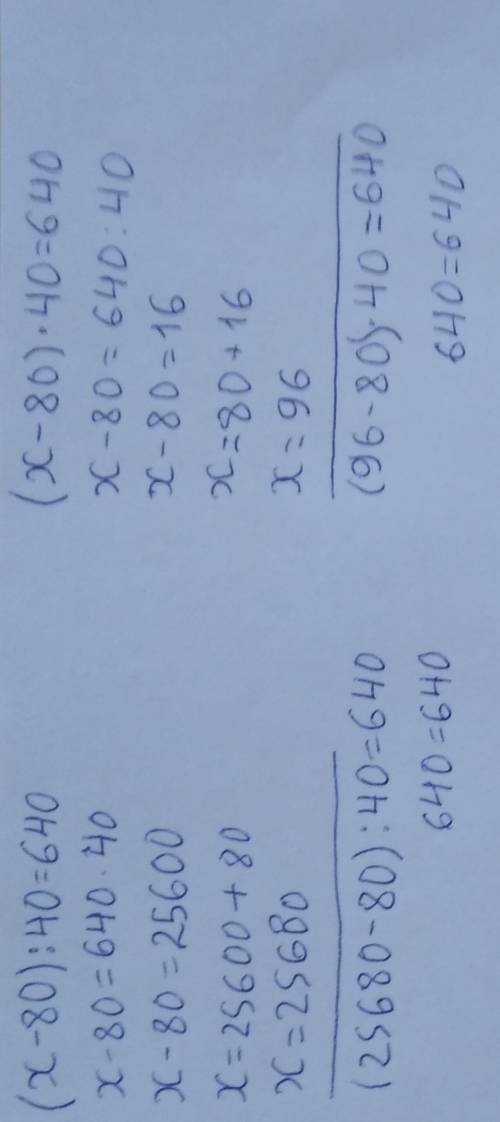 (x-80):40=640
x-80=640·40
x-80=25600
x=25600+80
x=25680
(25680-80):40=640
640=640
(x-80)·40=640
x-80=640:40
x-80=16
x=80+16
x=96
(96-80)·40=640
640=640